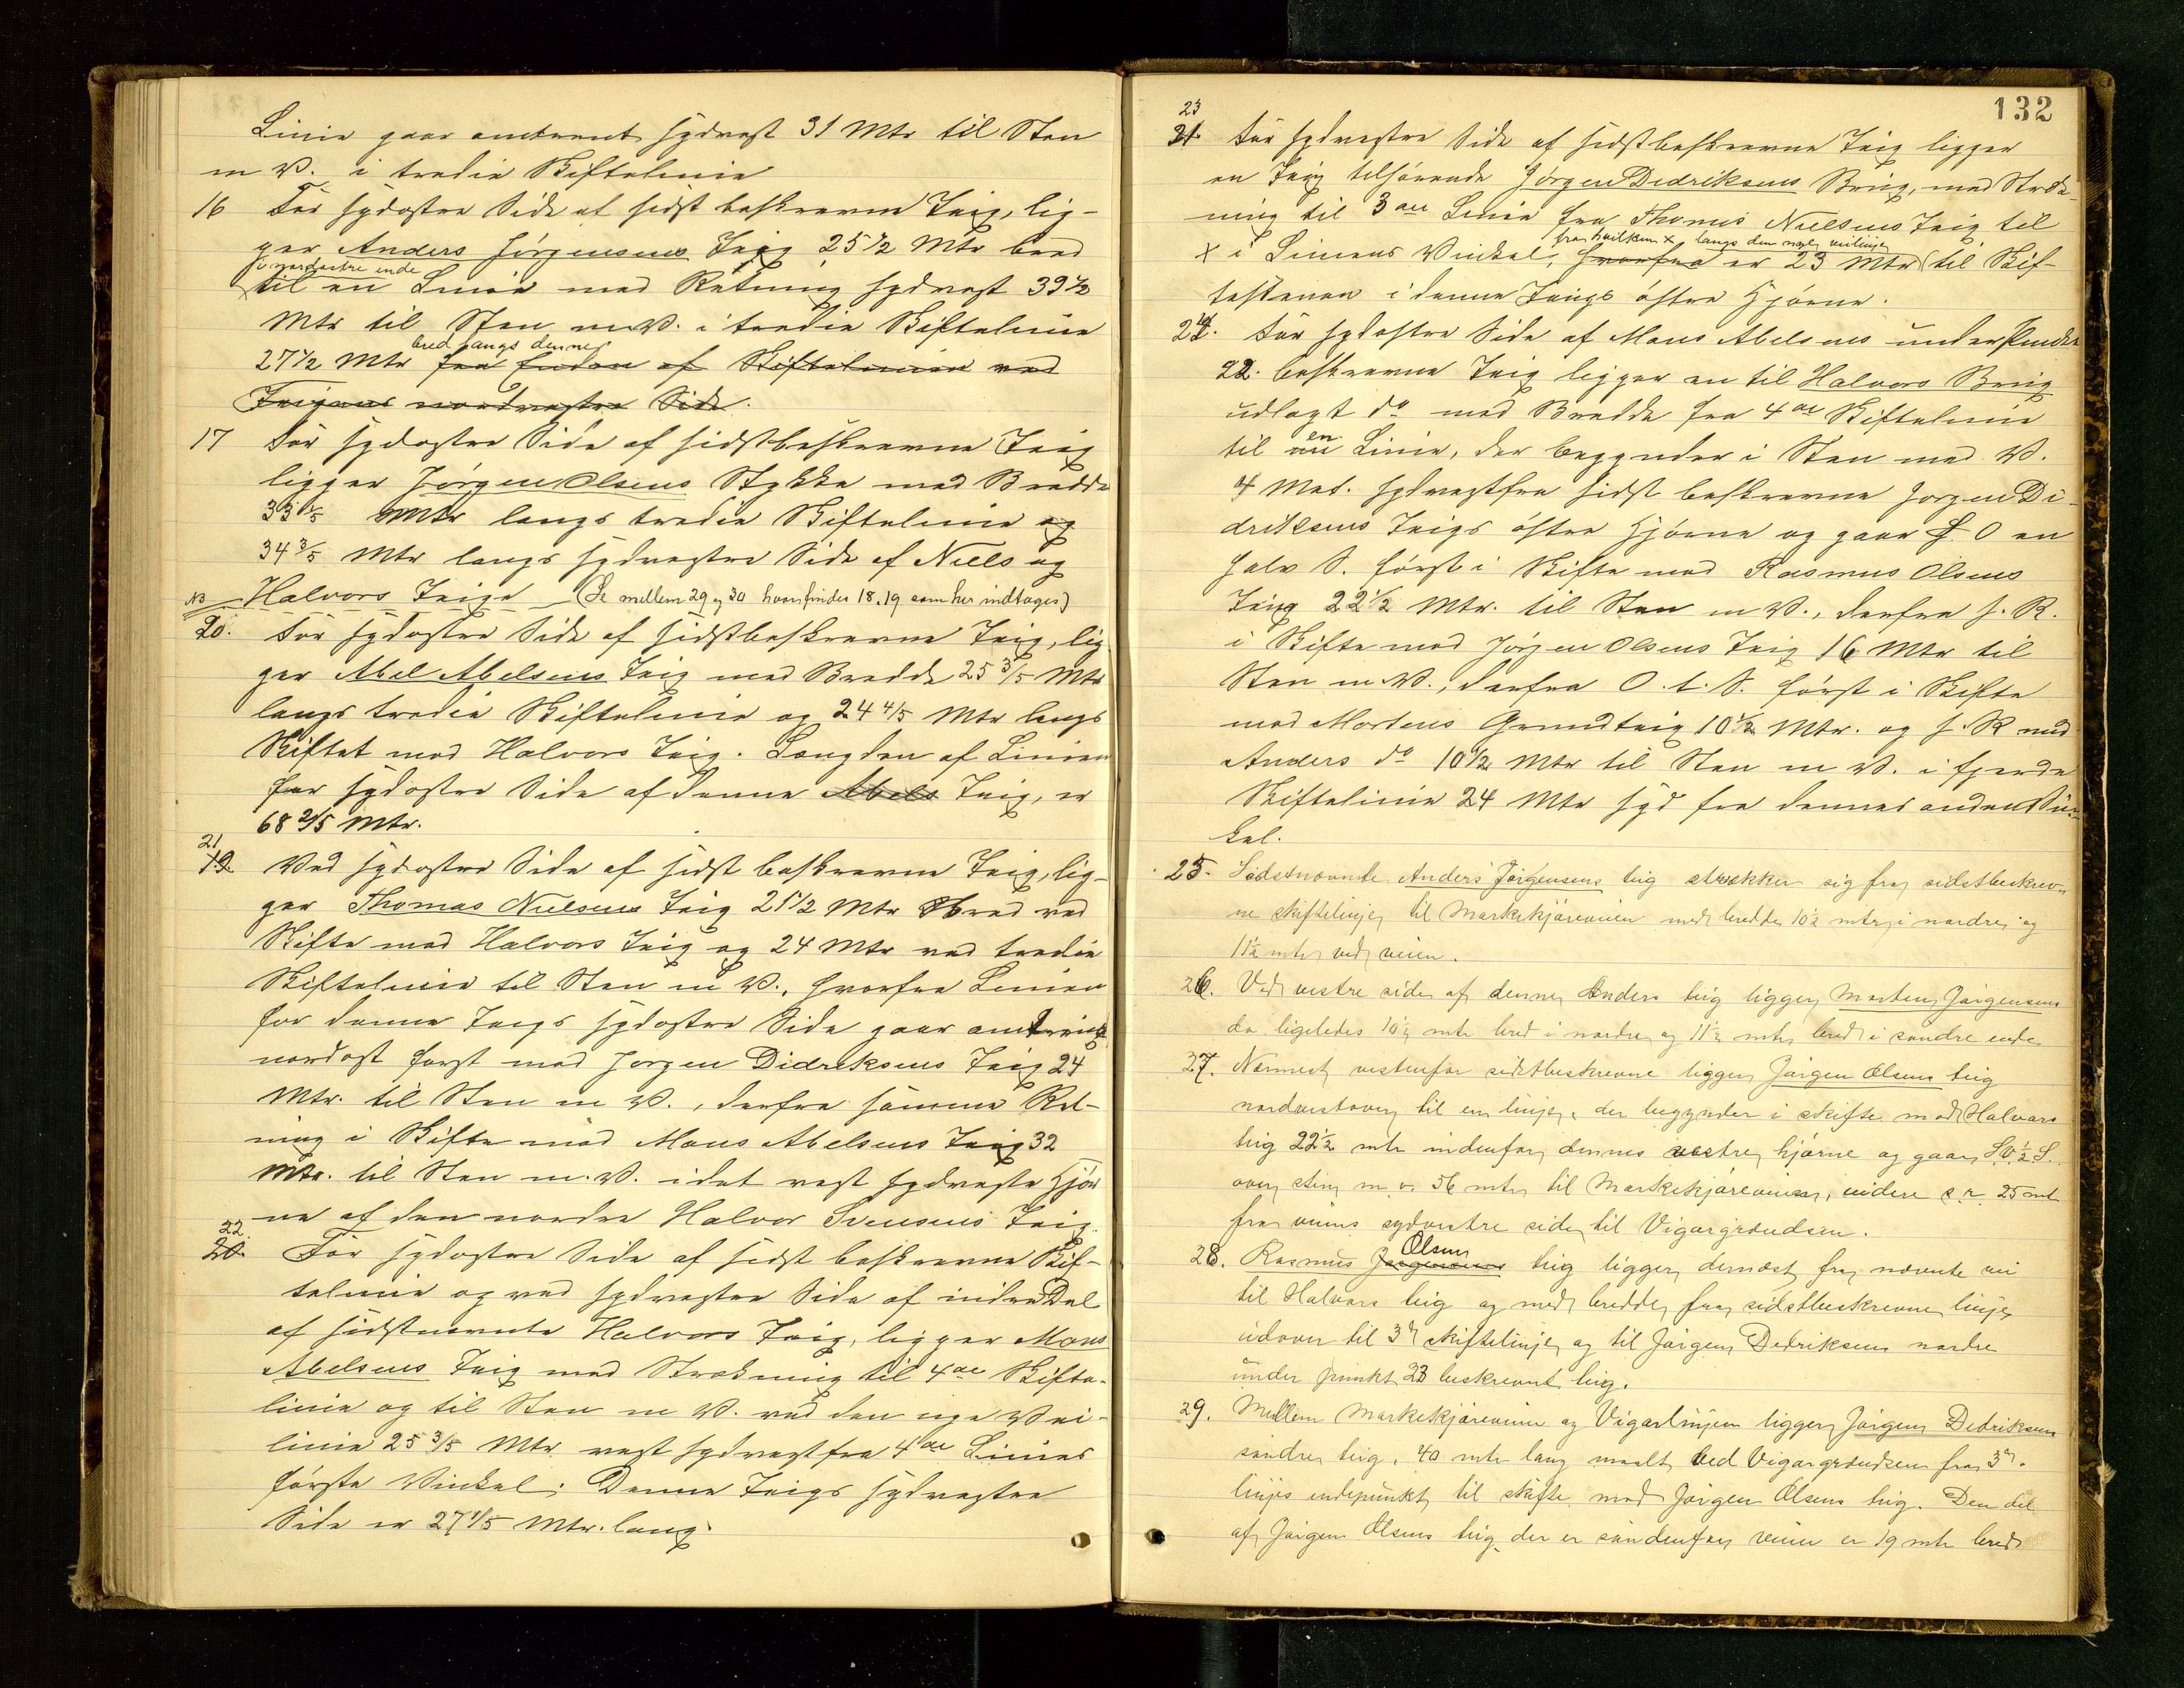 Linie gaar omtrent sydvest 31 Mtr til Sten
m V. i tredie Skiftelinie
16 For sydostre Side af sidst beskrevne Teig, lig-
ger Anders Jørgensens Teig 25 1/2 Mtr bred
i nordostre ende
til en Linie med Retning sydvest 39 1/2
Mtr til Sten m V. i tredie Skiftelinie
bred langs denne
27 1/2 Mtr fra Enden af Skiftelinien ved
Teigens nordvestre Side.
17 For sydostre Side af sidstbeskrevne Teig
ligger Jørgen Olsens Stykke med Bredde
33 Mtr langs tredie Skiftelinie og
34 3/5 Mtr langs sydvestre Side af Niels og
NB Halvors Teige (Se mellem 29 og 30 hvor findes 18, 19 som her indtages)
20. For sydostre Side af sidstbeskrevne Teig, lig-
ger Abel Abelsens Teig med Bredde 25 3/5 Mtr
langs tredie Skiftelinie og 24 4/5 Mtr langs
Skiftet mod Halvors Teig. Længden af Linien
for sydostre Side af denne Abels Teig, er
68 2/5 Mtr.
21
19 Ved sydostre Side af sidst beskrevne Teig, lig-
ger Thomas Nielsens Teig 21 1/2 Mtr bred ved
Skifte mod Halvors Teig og 24 Mtr ved tredie
Skiftelinie til Sten m V., hvorfra Linien
for denne Teigs sydostre Side gaar omtrent
nordost først mod Jørgen Didriksens Teig 24
Mtr. til Sten m V., derfra samme Ret-
ning i Skifte mod Mons Abelsens Teig 32
Mtr. til Sten m. V. i det vest sydveste Hjør
ne af den nordre Halvor Svensens Teig.
22.
20. For sydostre Side af sidst beskrevne Skif-
telinie og ved sydvestre Side af indre Del
af sidstnævnte Halvors Teig, ligger Mons
Abelsens Teig med Strækning til 4de Skifte-
linie og til Sten m V. ved den nye Vei-
linie 25 3/5 Mtr vest sydvest fra 4de Linies
første Vinkel; Denne Teigs sydvestre
Side er 27 1/5 Mtr. lang.
132
23
21. For sydvestre Side af sidstbeskrevne Teig ligger
en Teig tilhørende Jørgen Dedriksens Brug, med Stræk-
ning til 3die Linie fra Thomas Nielsens Teig til
fra hvilken x langs den nye veilinje
x i Liniens Vinkel, hvorfra er 23 Mtr til Skif-
testenen i denne Teigs østre Hjørne.
24. For sydostre Side af Mons Abelsens under Punkt
22. beskrevne Teig ligger en til Halvors Brug
udlagt do med Bredde fra 4de Skiftelinie
til en Linie, der begynder i Sten med V.
4 Met. sydvestfra sidst beskrevne Jørgen Di-
driksens Teigs østre Hjørne og gaar S. O en
halv S. først i Skifte mod Rasmus Olsens
Teig 22 1/2 Mtr. til Sten m V., derfra s. R.
i Skifte mod Jørgen Olsens Teig 16 Mtr til
Sten m. V., derfra O. t. S. først i Skifte
mod Mortens Grundteig 10 1/2 Mtr. og s. R mod
Anders do 10 1/2 Mtr til Sten m V. i fjerde
Skiftelinie 24 Mtr syd fra dennes anden Vin-
kel.
25. Sidstnævnte Anders Jørgensens teig strækker sig fra sidstbeskrev-
ne skiftelinje til Markekjøreveien med bredde 10 1/2 mtr i nordre og
11 1/2 mtr ved veien.
26. Ved vestre side af denne Anders teig ligger Morten Jørgensens
do ligeledes 10 1/2 mtr bred i nordre og 11 1/2 mtr bred i søndre ende.
27. Nærmest vestenfor sidstbeskrevne ligger Jørgen Olsens teig
nordvestover til en linje, der begynder i skifte mod Halvors
teig 22 1/2 mtr indenfor dennes vestre hjørne og gaar S.V. 1/2 S.
over sten m. v. 56 mtr til Markekjøreveien, videre s. r. 25 mtr
fra veiens sydvestre side til Vigargrændsen.
28. Rasmus Jørgensens Olsens teig ligger dernæst fra nævnte vei
til Halvors teig og med bredde fra sidstbeskrevne linje
udover til 3die skiftelinje og til Jørgen Dedriksens nordre
under punkt 23 beskrevne teig.
29. Mellem Markekjøreveien og Vigarlinjen ligger Jørgen Dedriksens
søndre teig, 40 mtr lang maalt ved Vigargrændsen fra 3die
linjes endepunkt til skifte mod Jørgen Olsens teig. Den del
af Jørgen Olsens teig der er søndenfor veien er 19 mtr bred